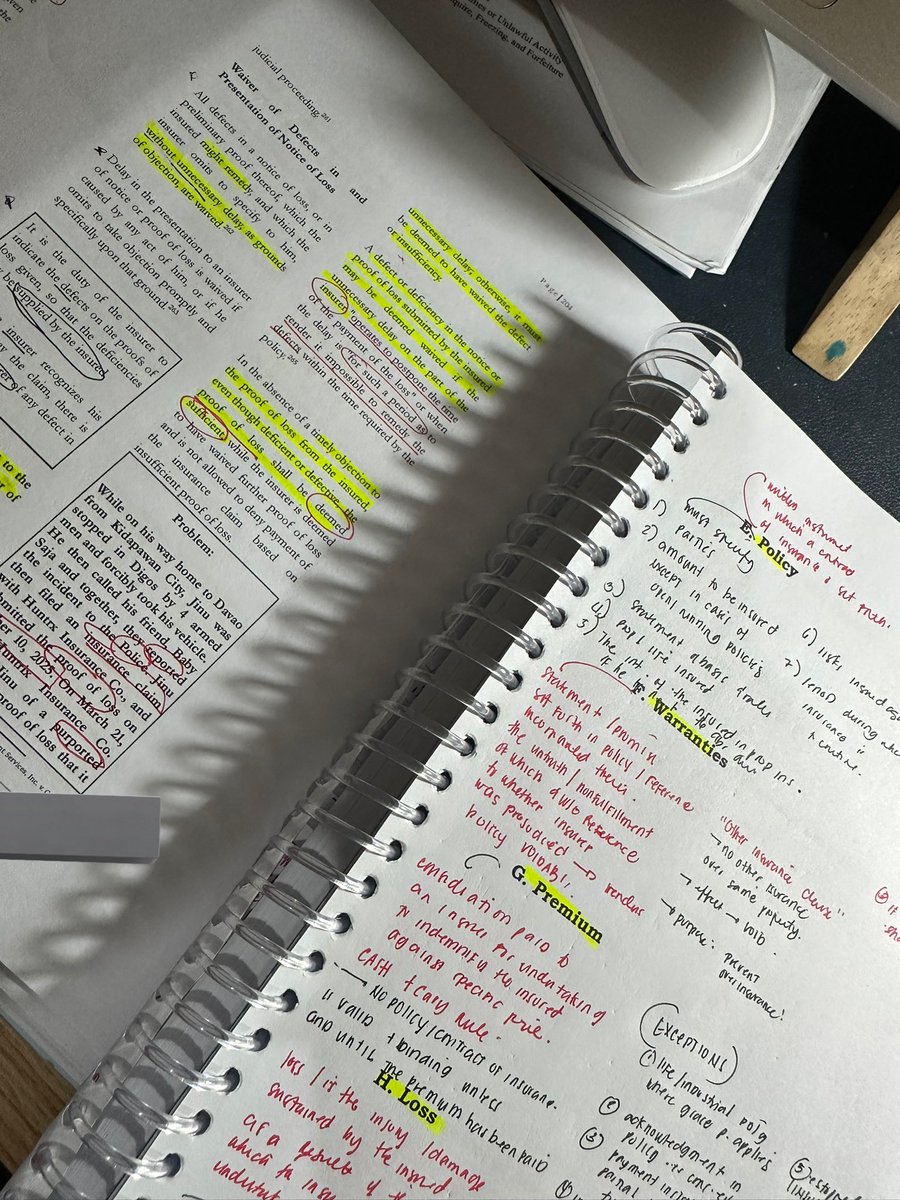 judicial proceeding. 261
Waiver of Defects in and
Presentation of Notice of Loss
All defects in a notice of loss, or in
preliminary proof thereof, which the
insured might remedy, and which the
insurer omits to specify to him,
without unnecessary delay, as grounds
of objection, are waived. 262
Delay in the presentation to an insurer
of notice or proof of loss is waived if
caused by any act of him, or if he
omits to take objection promptly and
specifically upon that ground. 263
It is the duty of the insurer to
indicate the defects on the proofs of
loss given, so that the deficiencies
be supplied by the insured
insurer recognizes his
the claim, there is
of any defect in
to the
of
Page | 204
unnecessary delay; otherwise, it must
be deemed to have waived the defect
or insufficiency.
A defect or deficiency in the notice or
proofs of loss submitted by the insured
may be deemed waived if the
unnecessary delay on the part of the
insurer "operates to postpone the time
of the payment of the loss" or when
the delay is "for such a period as to
render it impossible to remedy the
defects within the time required by the
policy. 265
In the absence of a timely objection to
the proof of loss from the insured,
even though deficient or defective, the
proof of loss shall be deemed
sufficient while the insurer is deemed
to have waived further proof of loss
and is not allowed to deny payment of
the insurance claim based on
insufficient proof of loss.
Problem:
While on his way home to Davao
from Kidapawan City, Jinu was
stopped in Digos by 2 armed
men and forcibly took his vehicle.
He then called his friend, Baby
Saja and together, they reported
the incident to the Police. Jinu
then filed an insurance claim
with Huntrx Insurance Co., and
submitted the proof of loss on
10, 2025. On March 21,
Huntrix Insurance Co.
Jinu of a purported
proof of loss that it
Services, Inc. v.
mes or Unlawful Activity
quire, Freezing, and Forfeiture
written instrument
in which a contract
of insurance is set forth.
E. Policy
must specify
1) parties
2) amount to be insured
except in case of
open/running policies
3) statement
4) prop/ life insured
5) The int. of the insured in prop ins.
if he is not the abs. own
6) risks insured against
7) period during which
insurance is
to continue.
F. Warranties
statement/promise
set forth in policy/reference
incorporated therein.
the untruth/nonfulfillment
of which
w/o reference
to whether insurer
was prejudiced → renders
policy VOIDABLE
"Other insurance clause"
→ no other insurance
over same property.
→ effect → void
→ purpose:
prevent
overinsurance!
G. Premium
consideration paid to
an insurer for undertaking
to indemnify the insured
against specific peril.
CASH & Carry Rule.
→ No policy/contract of insurance
is valid & binding unless
and until the premium has been paid
EXCEPTIONS
① life/industrial policy
where grace p. applies
② acknowledgment in
policy
③ payment
④
⑤
H. Loss
loss/is the injury/damage
sustained by the insured
as a result of
which the insurer